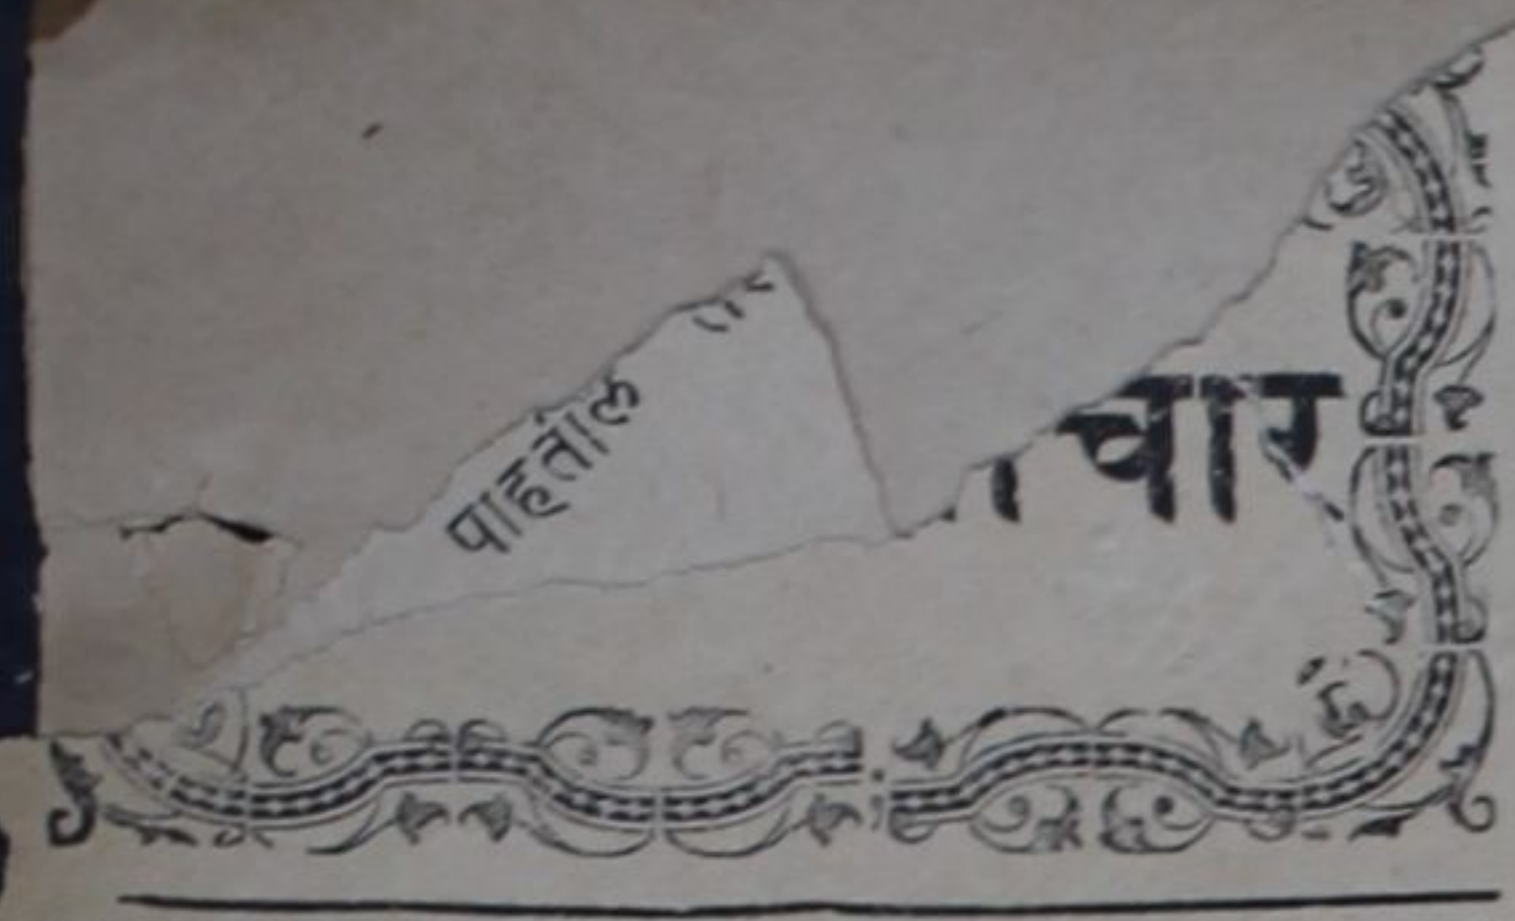 पाहतील
चार